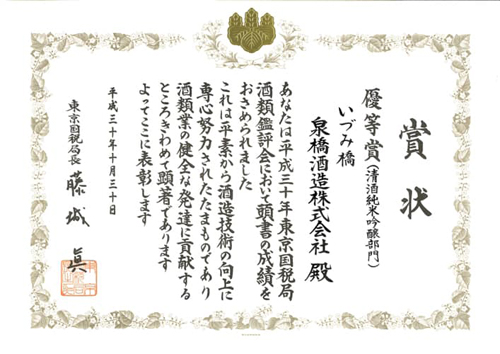 賞状
優等賞(清酒純米吟醸部門)
いづみ橋
泉橋酒造株式会社 殿
あなたは平成三十年東京国税局
酒類鑑評会において頭書の成績を
おさめられました
これは平素から酒造技術の向上に
専心努力されたたまものであり
酒類業の健全な発達に貢献する
ところきわめて顕著であります
よってここに表彰します
平成三十年十月三十日
東京国税局長 藤城眞